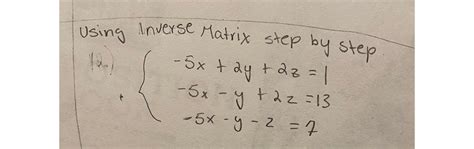 Using Inverse Matrix step by step
-5x + 2y + 2z = 1
-5x - y + 2z = 13
-5x - y - z = 7